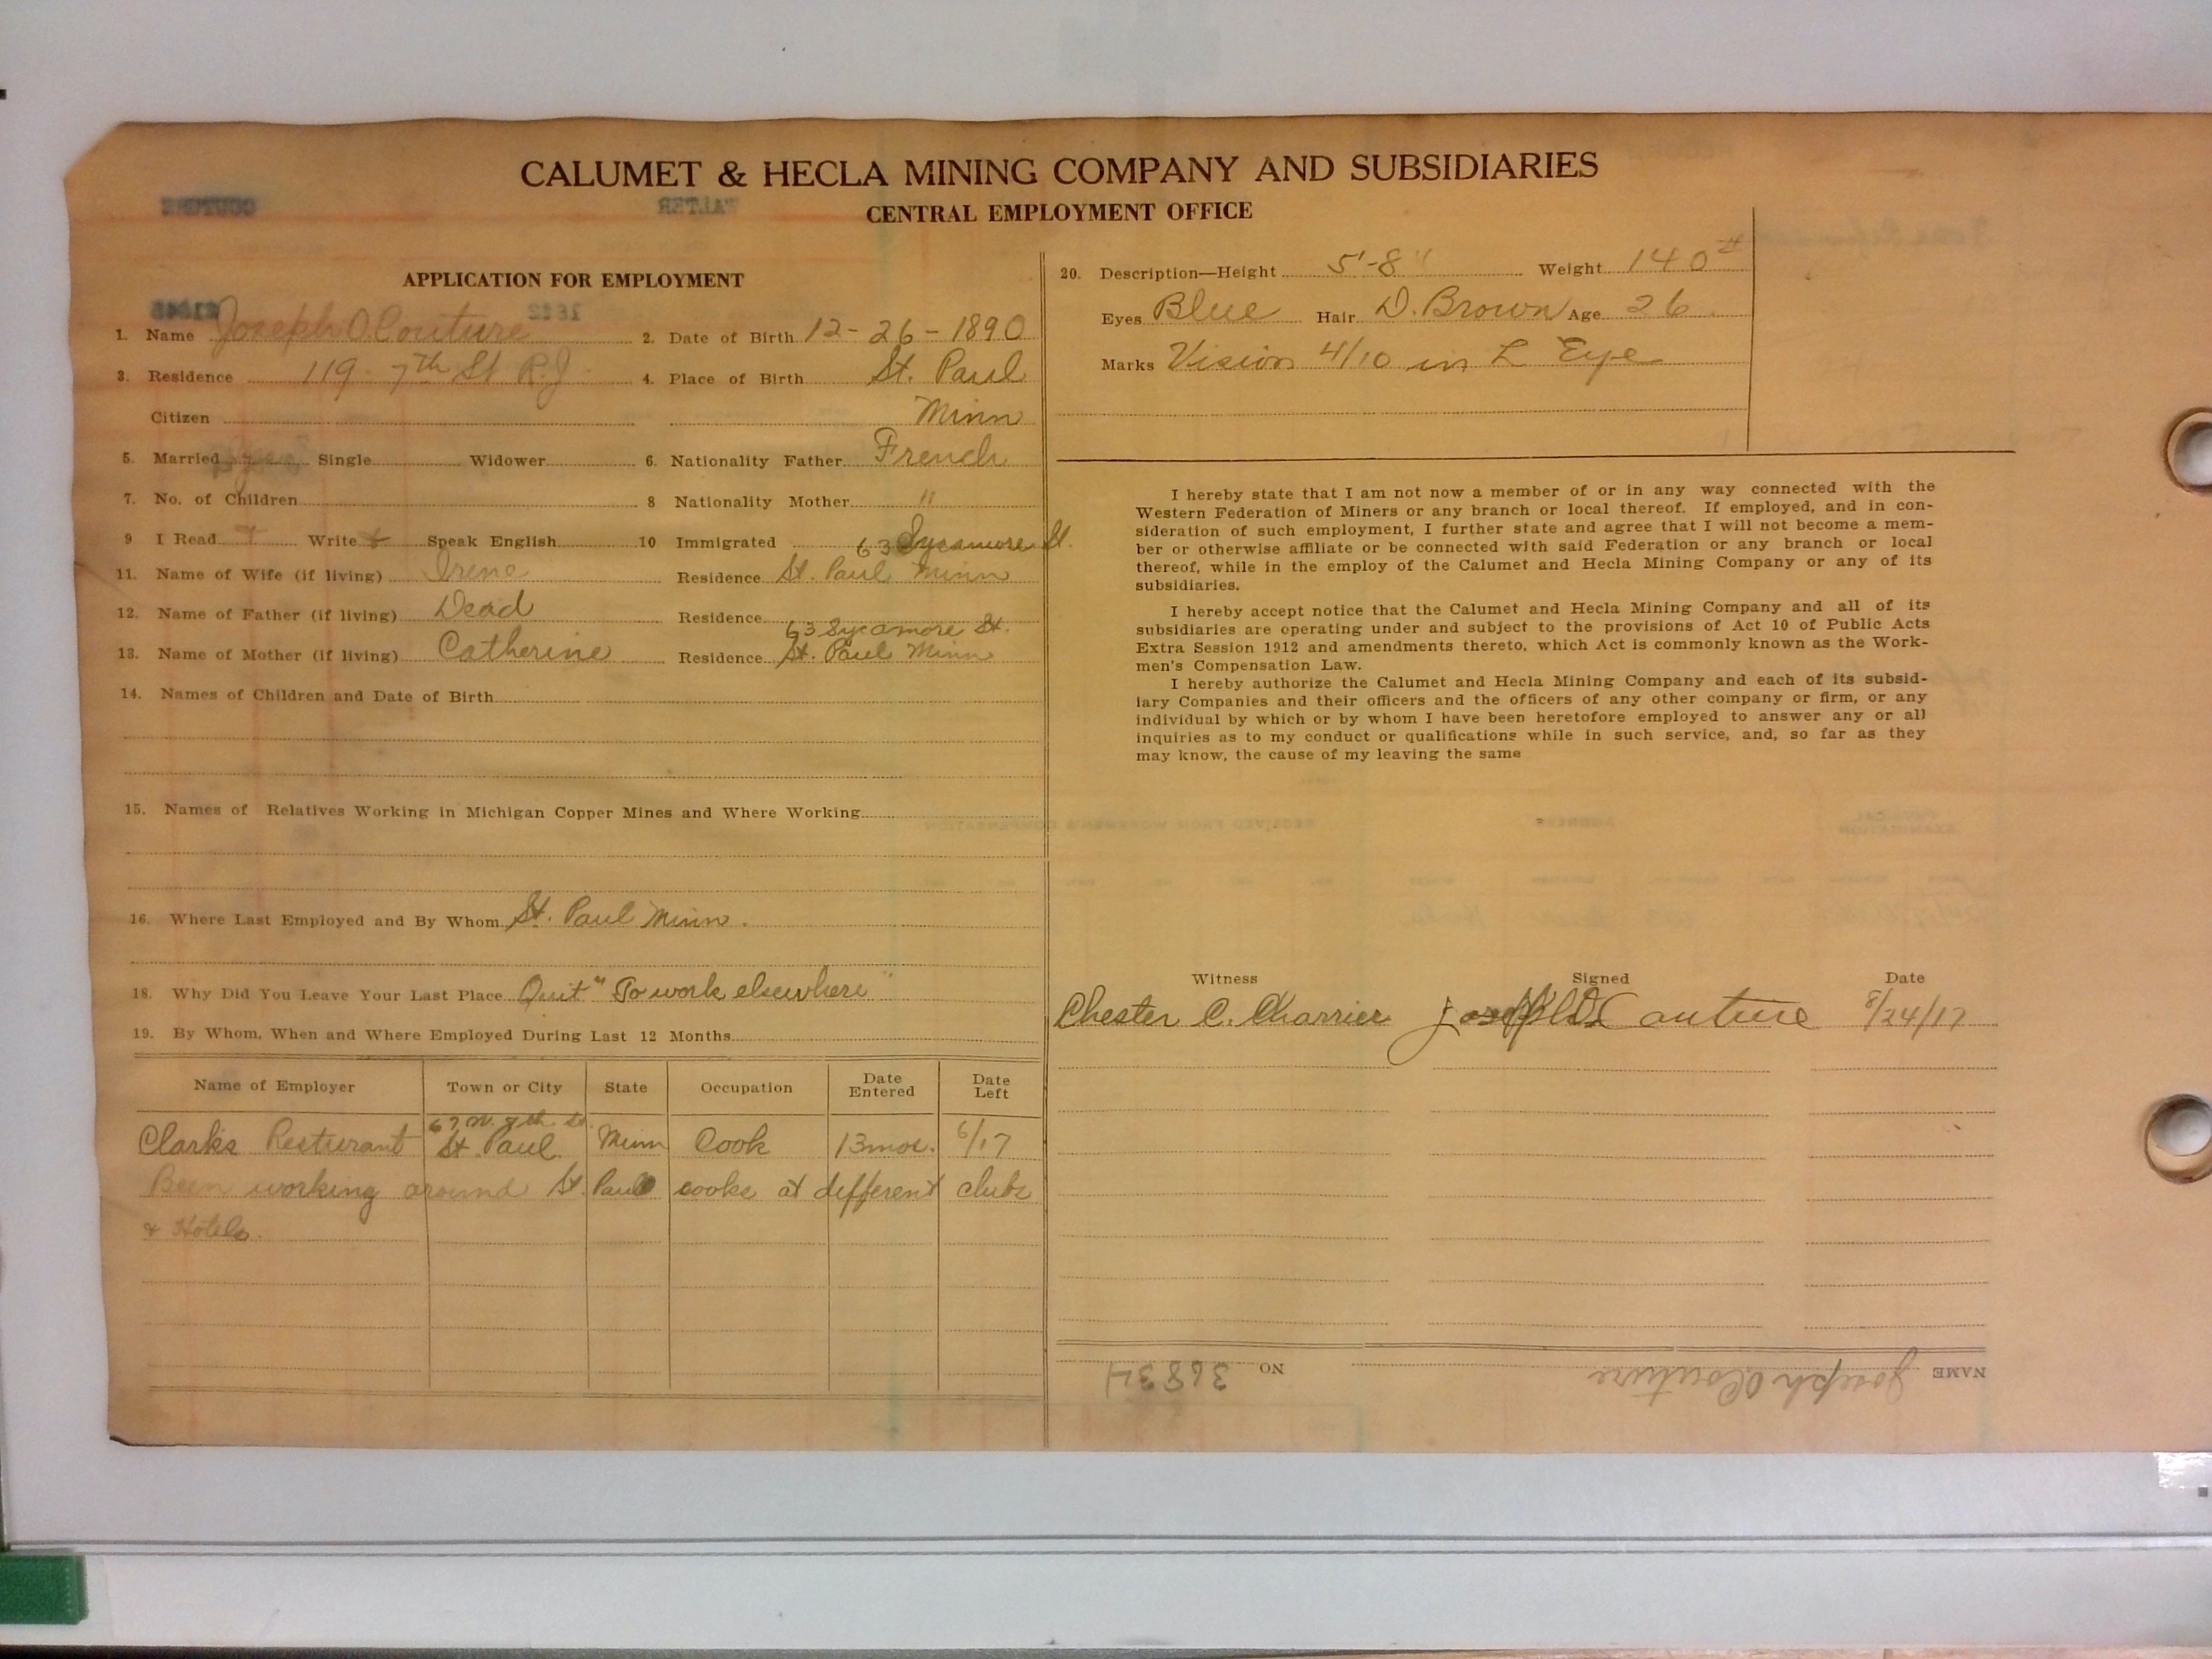 CALUMET & HECLA MINING COMPANY AND SUBSIDIARIES
CENTRAL EMPLOYMENT OFFICE
APPLICATION FOR EMPLOYMENT
1. Name Joseph O Couture 2. Date of Birth 12-26-1890
3. Residence 119 7th St R.J 4. Place of Birth St. Paul
Citizen Minn
5. Married Single Widower 6. Nationality Father French
7. No. of Children 8 Nationality Mother "
9 I Read Write Speak English 10 Immigrated
63 Sycamore St.
11. Name of Wife (if living) Irene Residence St. Paul Minn
12. Name of Father (if living) Dead Residence
63 Sycamore St.
13. Name of Mother (if living) Catherine Residence St. Paul Minn
14. Names of Children and Date of Birth
15. Names of Relatives Working in Michigan Copper Mines and Where Working
16. Where Last Employed and By Whom St. Paul Minn.
18. Why Did You Leave Your Last Place Quit "To work elsewhere"
19. By Whom, When and Where Employed During Last 12 Months
Name of Employer Town or City State Occupation Date Entered Date Left
67 N. 7th St.
Clarks Resturant St. Paul Minn Cook 13mos. 6/17
Been working around St. Paul cooks at different clubs
& Hotels.
20. Description—Height 5'-8" Weight 140#
Eyes Blue Hair D. Brown Age 26
Marks Vision 4/10 in L Eye
I hereby state that I am not now a member of or in any way connected with the
Western Federation of Miners or any branch or local thereof. If employed, and in con-
sideration of such employment, I further state and agree that I will not become a mem-
ber or otherwise affiliate or be connected with said Federation or any branch or local
thereof, while in the employ of the Calumet and Hecla Mining Company or any of its
subsidiaries.
I hereby accept notice that the Calumet and Hecla Mining Company and all of its
subsidiaries are operating under and subject to the provisions of Act 10 of Public Acts
Extra Session 1912 and amendments thereto, which Act is commonly known as the Work-
men's Compensation Law.
I hereby authorize the Calumet and Hecla Mining Company and each of its subsid-
iary Companies and their officers and the officers of any other company or firm, or any
individual by which or by whom I have been heretofore employed to answer any or all
inquiries as to my conduct or qualifications while in such service, and, so far as they
may know, the cause of my leaving the same
Witness Signed Date
Chester C. Charrier Joseph O Couture 8/24/17
NAME Joseph O Couture NO 36834